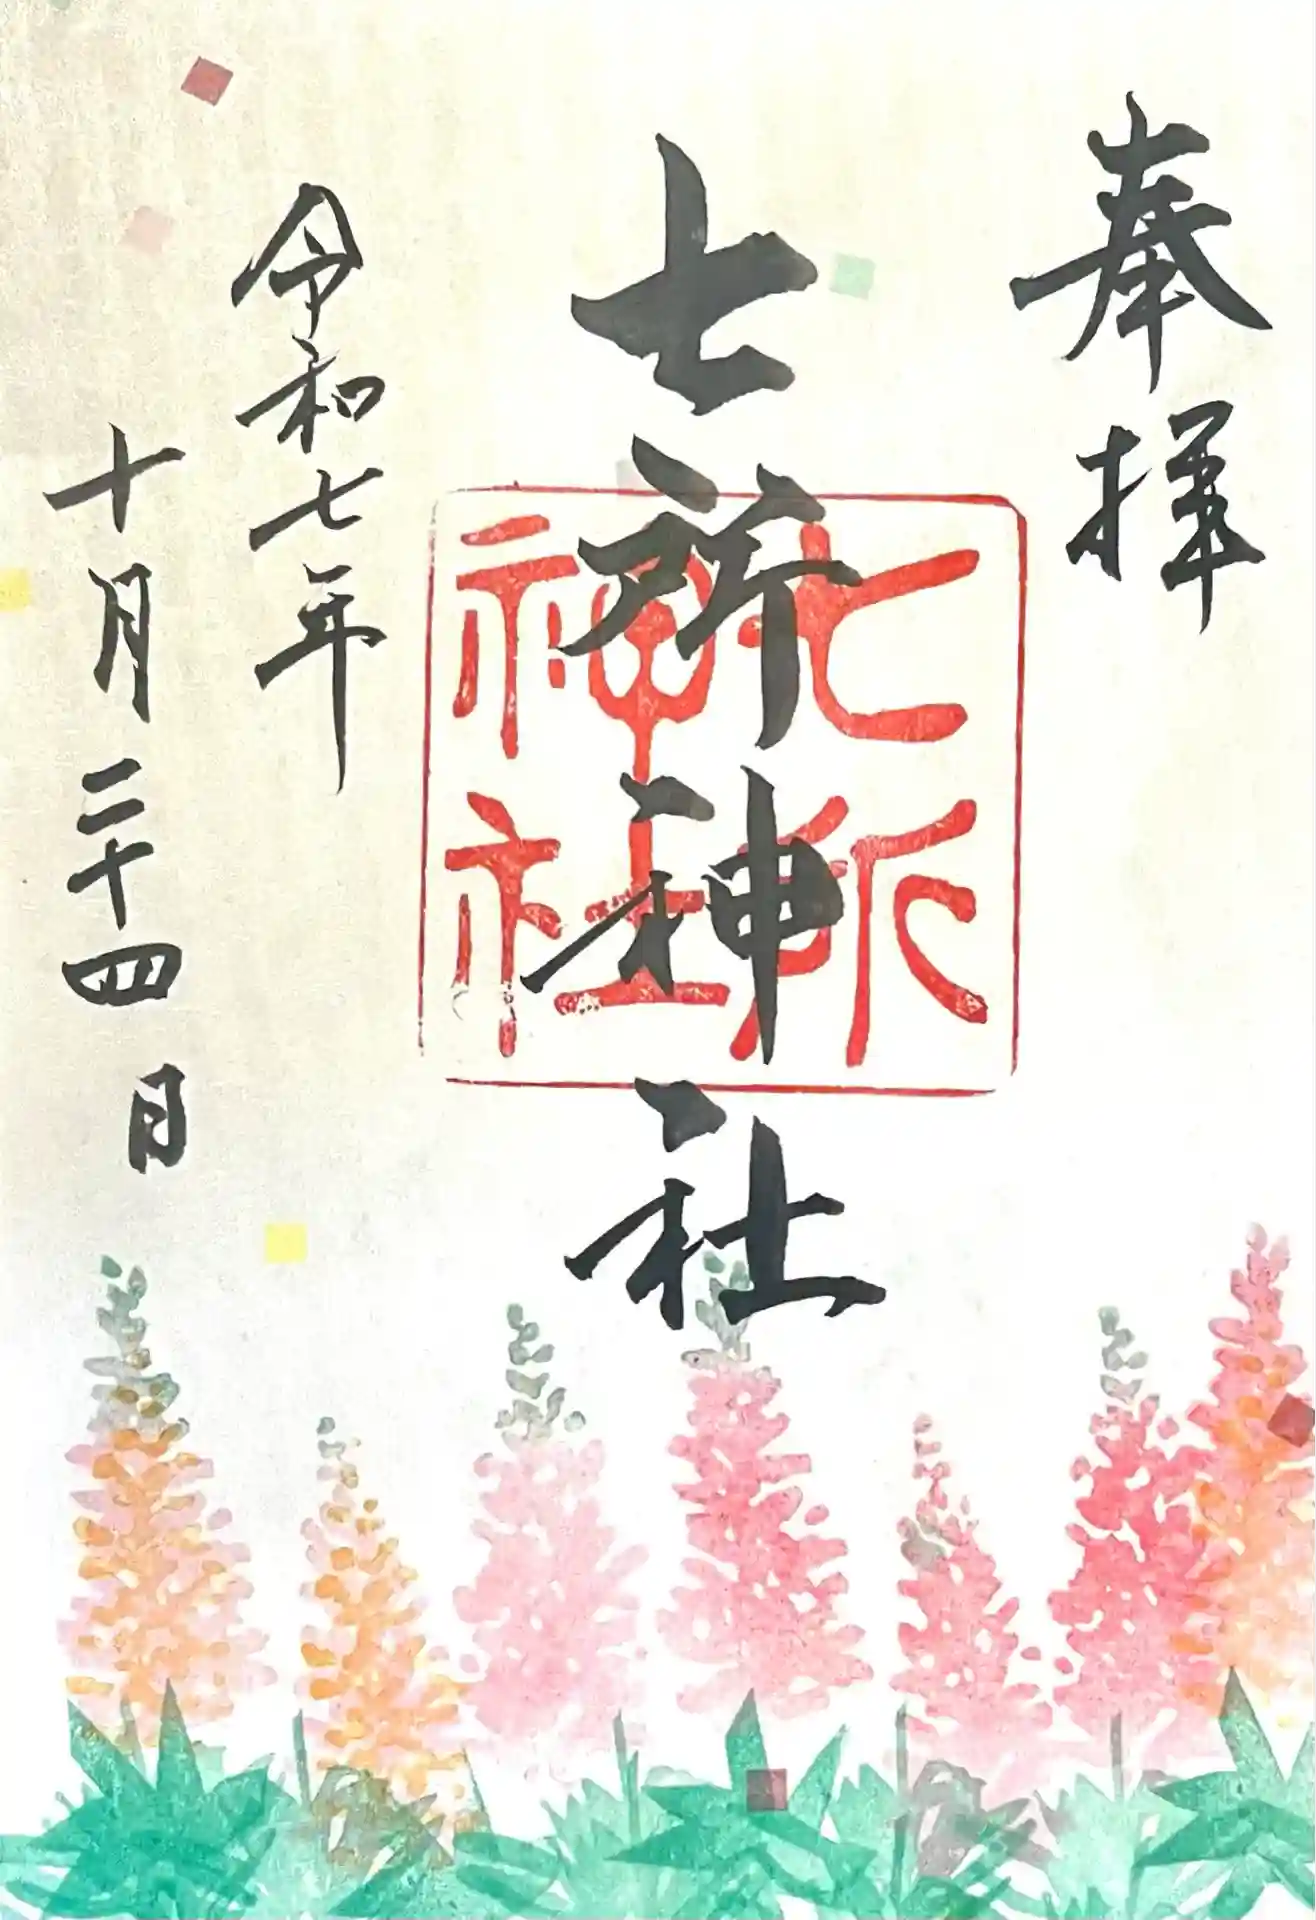 奉拝
七所神社
七所神社
令和七年
十月二十四日